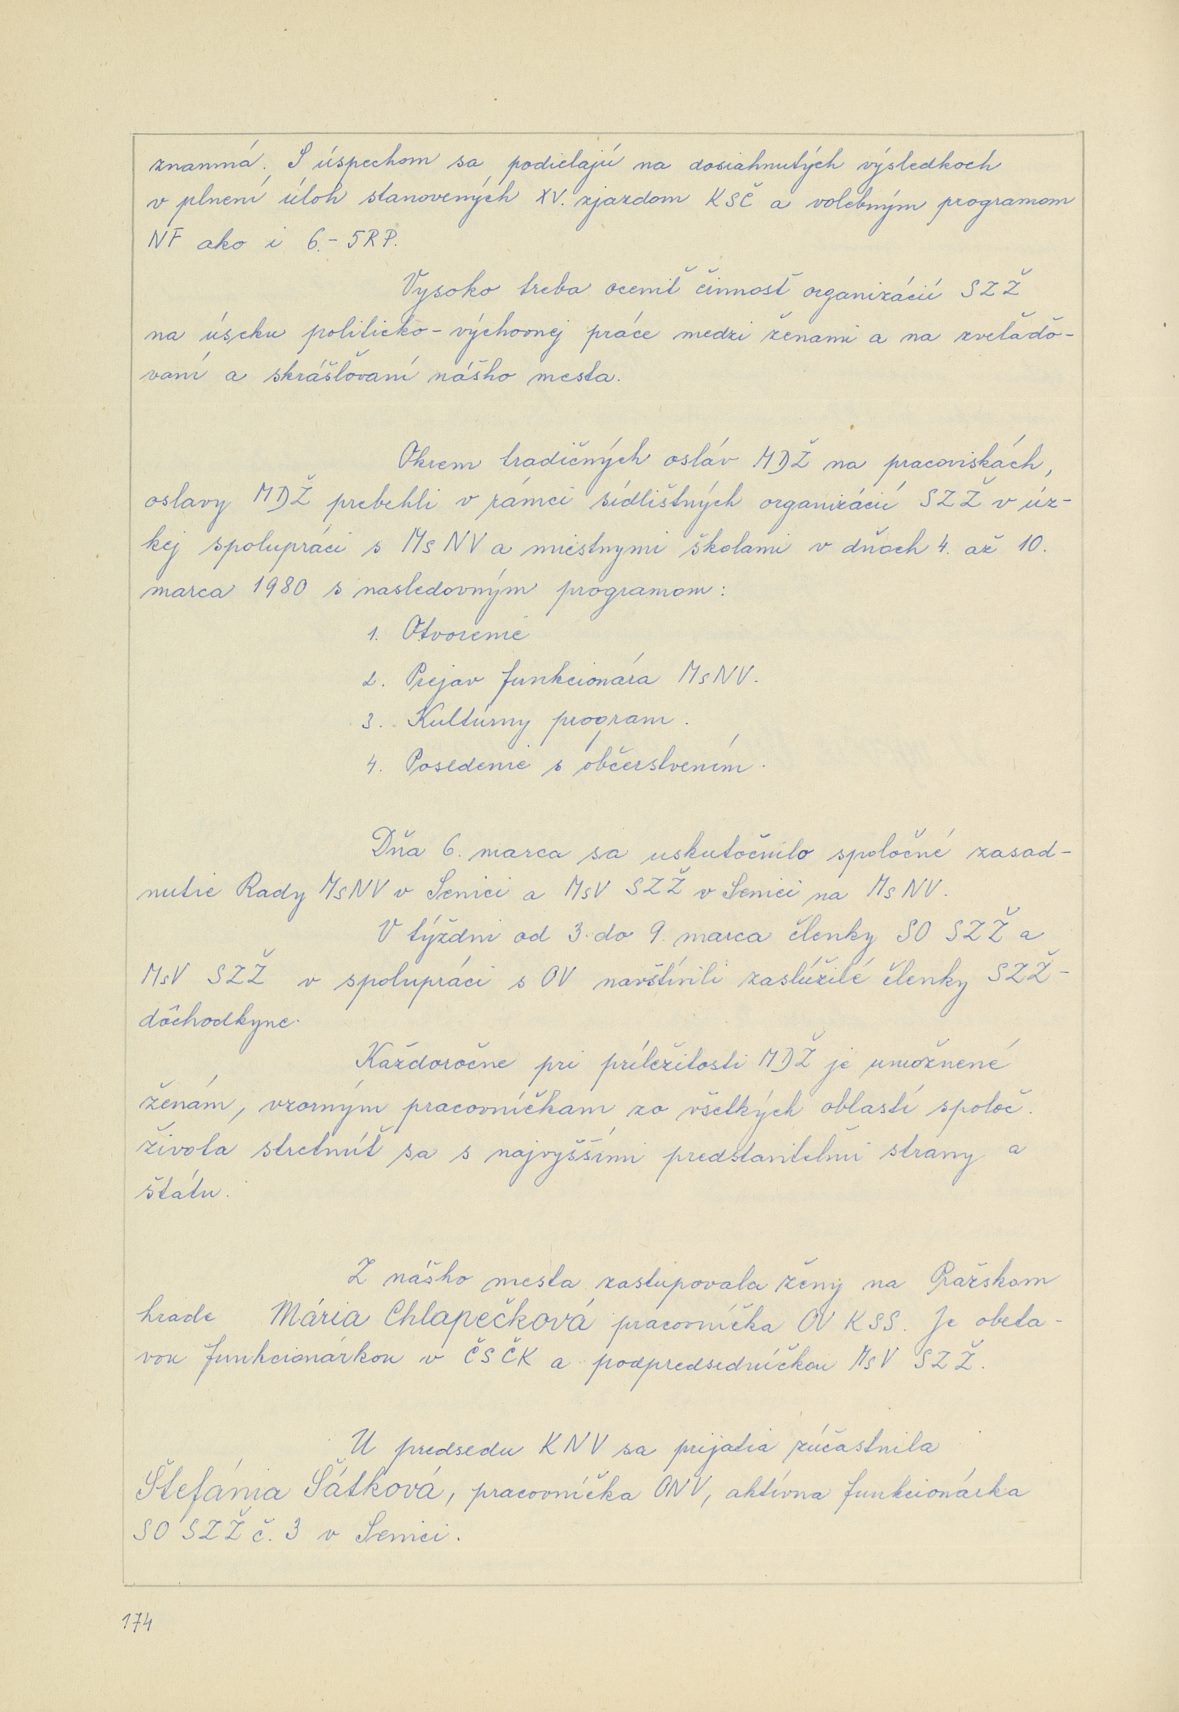 znanmá. S úspechom sa podielajú na dosiahnutých výsledkoch
v plnení úloh stanovených XV. zjazdom KSČ a volebným programom
NF ako i 6.- 5RP.
Vysoko treba oceniť činnosť organizácií SZŽ
na úseku politicko-výchovnej práce medzi ženami a na zveľaďo-
vaní a skrášľovaní nášho mesta.
Okrem tradičných osláv MDŽ na pracoviskách,
oslavy MDŽ prebehli v rámci sídlištných organizácií SZŽ v úz-
kej spolupráci s MsNV a miestnymi školami v dňoch 4. až 10.
marca 1980 s nasledovným programom:
1. Otvorenie
2. Prejav funkcionára MsNV.
3. Kultúrny program.
4. Posedenie s občerstvením.
Dňa 6. marca sa uskutočnilo spoločné zasad-
nutie Rady MsNV v Senici a MsV SZŽ v Senici na MsNV.
V týždni od 3. do 9. marca členky SO SZŽ a
MsV SZŽ v spolupráci s OV navštívili zaslúžilé členky SZŽ-
dôchodkyne.
Každoročne pri príležitosti MDŽ je umožnené
ženám, vzorným pracovníčkam zo všetkých oblastí spoloč.
života stretnúť sa s najvyššími predstaviteľmi strany a
štátu.
Z nášho mesta zastupovala ženy na Pražskom
hrade Mária Chlapečková pracovníčka OV KSS. Je obeta-
vou funkcionárkou v ČSČK a podpredsedníčkou MsV SZŽ.
U predsedu KNV sa prijatia zúčastnila
Štefánia Šátková, pracovníčka ONV, aktívna funkcionárka
SO SZŽ č. 3 v Senici.
174